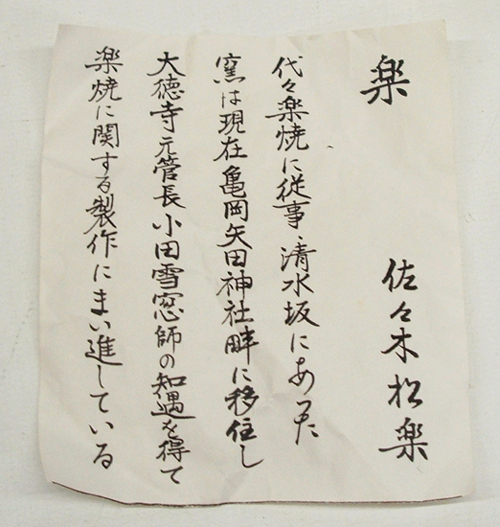 楽　佐々木松楽
代々楽焼に従事、清水坂にあった
窯は現在亀岡矢田神社畔に移住し
大徳寺元管長小田雪窓師の知遇を得て
楽焼に関する製作にまい進している